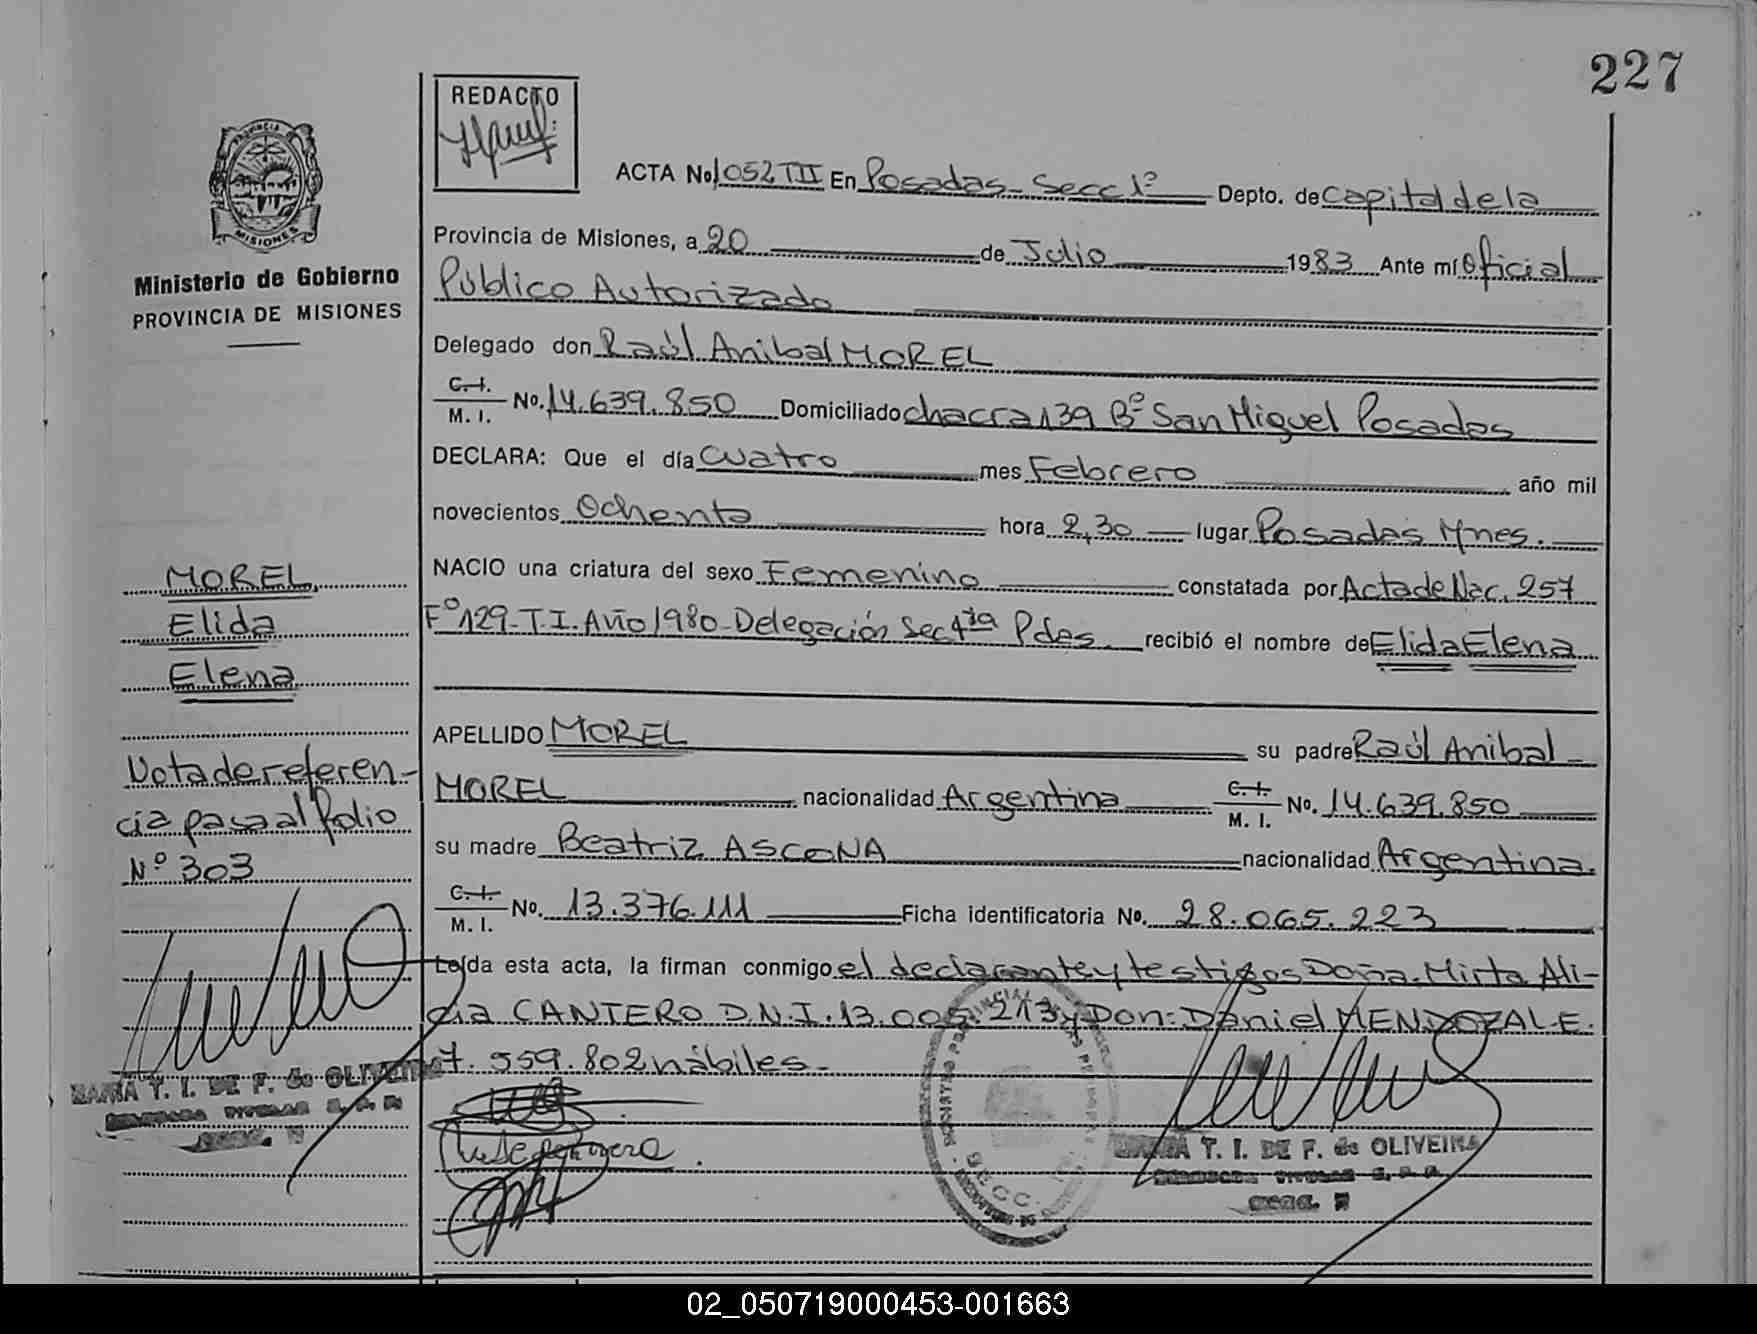 227
REDACTO
ACTA No 1052 TIII En Posadas - Secc 1º Depto. de Capital de la
Provincia de Misiones, a 20 de Julio 1983 Ante mí Oficial
Público Autorizado
Delegado don Raúl Anibal MOREL
C.I. / M. I. No. 14.639.850 Domiciliado chacra 139 Bº San Miguel Posadas
DECLARA: Que el día Cuatro mes Febrero año mil
novecientos Ochenta hora 2,30 lugar Posadas Mnes.
NACIO una criatura del sexo Femenino constatada por Acta de Nac. 257
Fº 129 - T.I. Año 1980 - Delegación Sec 4ta Pdas. recibió el nombre de Elida Elena
APELLIDO MOREL su padre Raúl Anibal
MOREL nacionalidad Argentina C.I. / M. I. No. 14.639.850
su madre Beatriz ASCONA nacionalidad Argentina.
C.I. / M. I. No. 13.376.111 Ficha identificatoria No. 28.065.223
Leída esta acta, la firman conmigo el declarante y testigos Doña. Mirta Ali-
cia CANTERO D.N.I. 13.005.213 y Don: Daniel MENDOZA L.E.
7.559.802 hábiles.-
PROVINCIA DE
MISIONES
Ministerio de Gobierno
PROVINCIA DE MISIONES
MOREL
Elida
Elena
Nota de referen-
cia pasa al folio
Nº 303
MARIA T. I. DE F. de OLIVEIRA
MARIA T. I. DE F. de OLIVEIRA
02_050719000453-001663